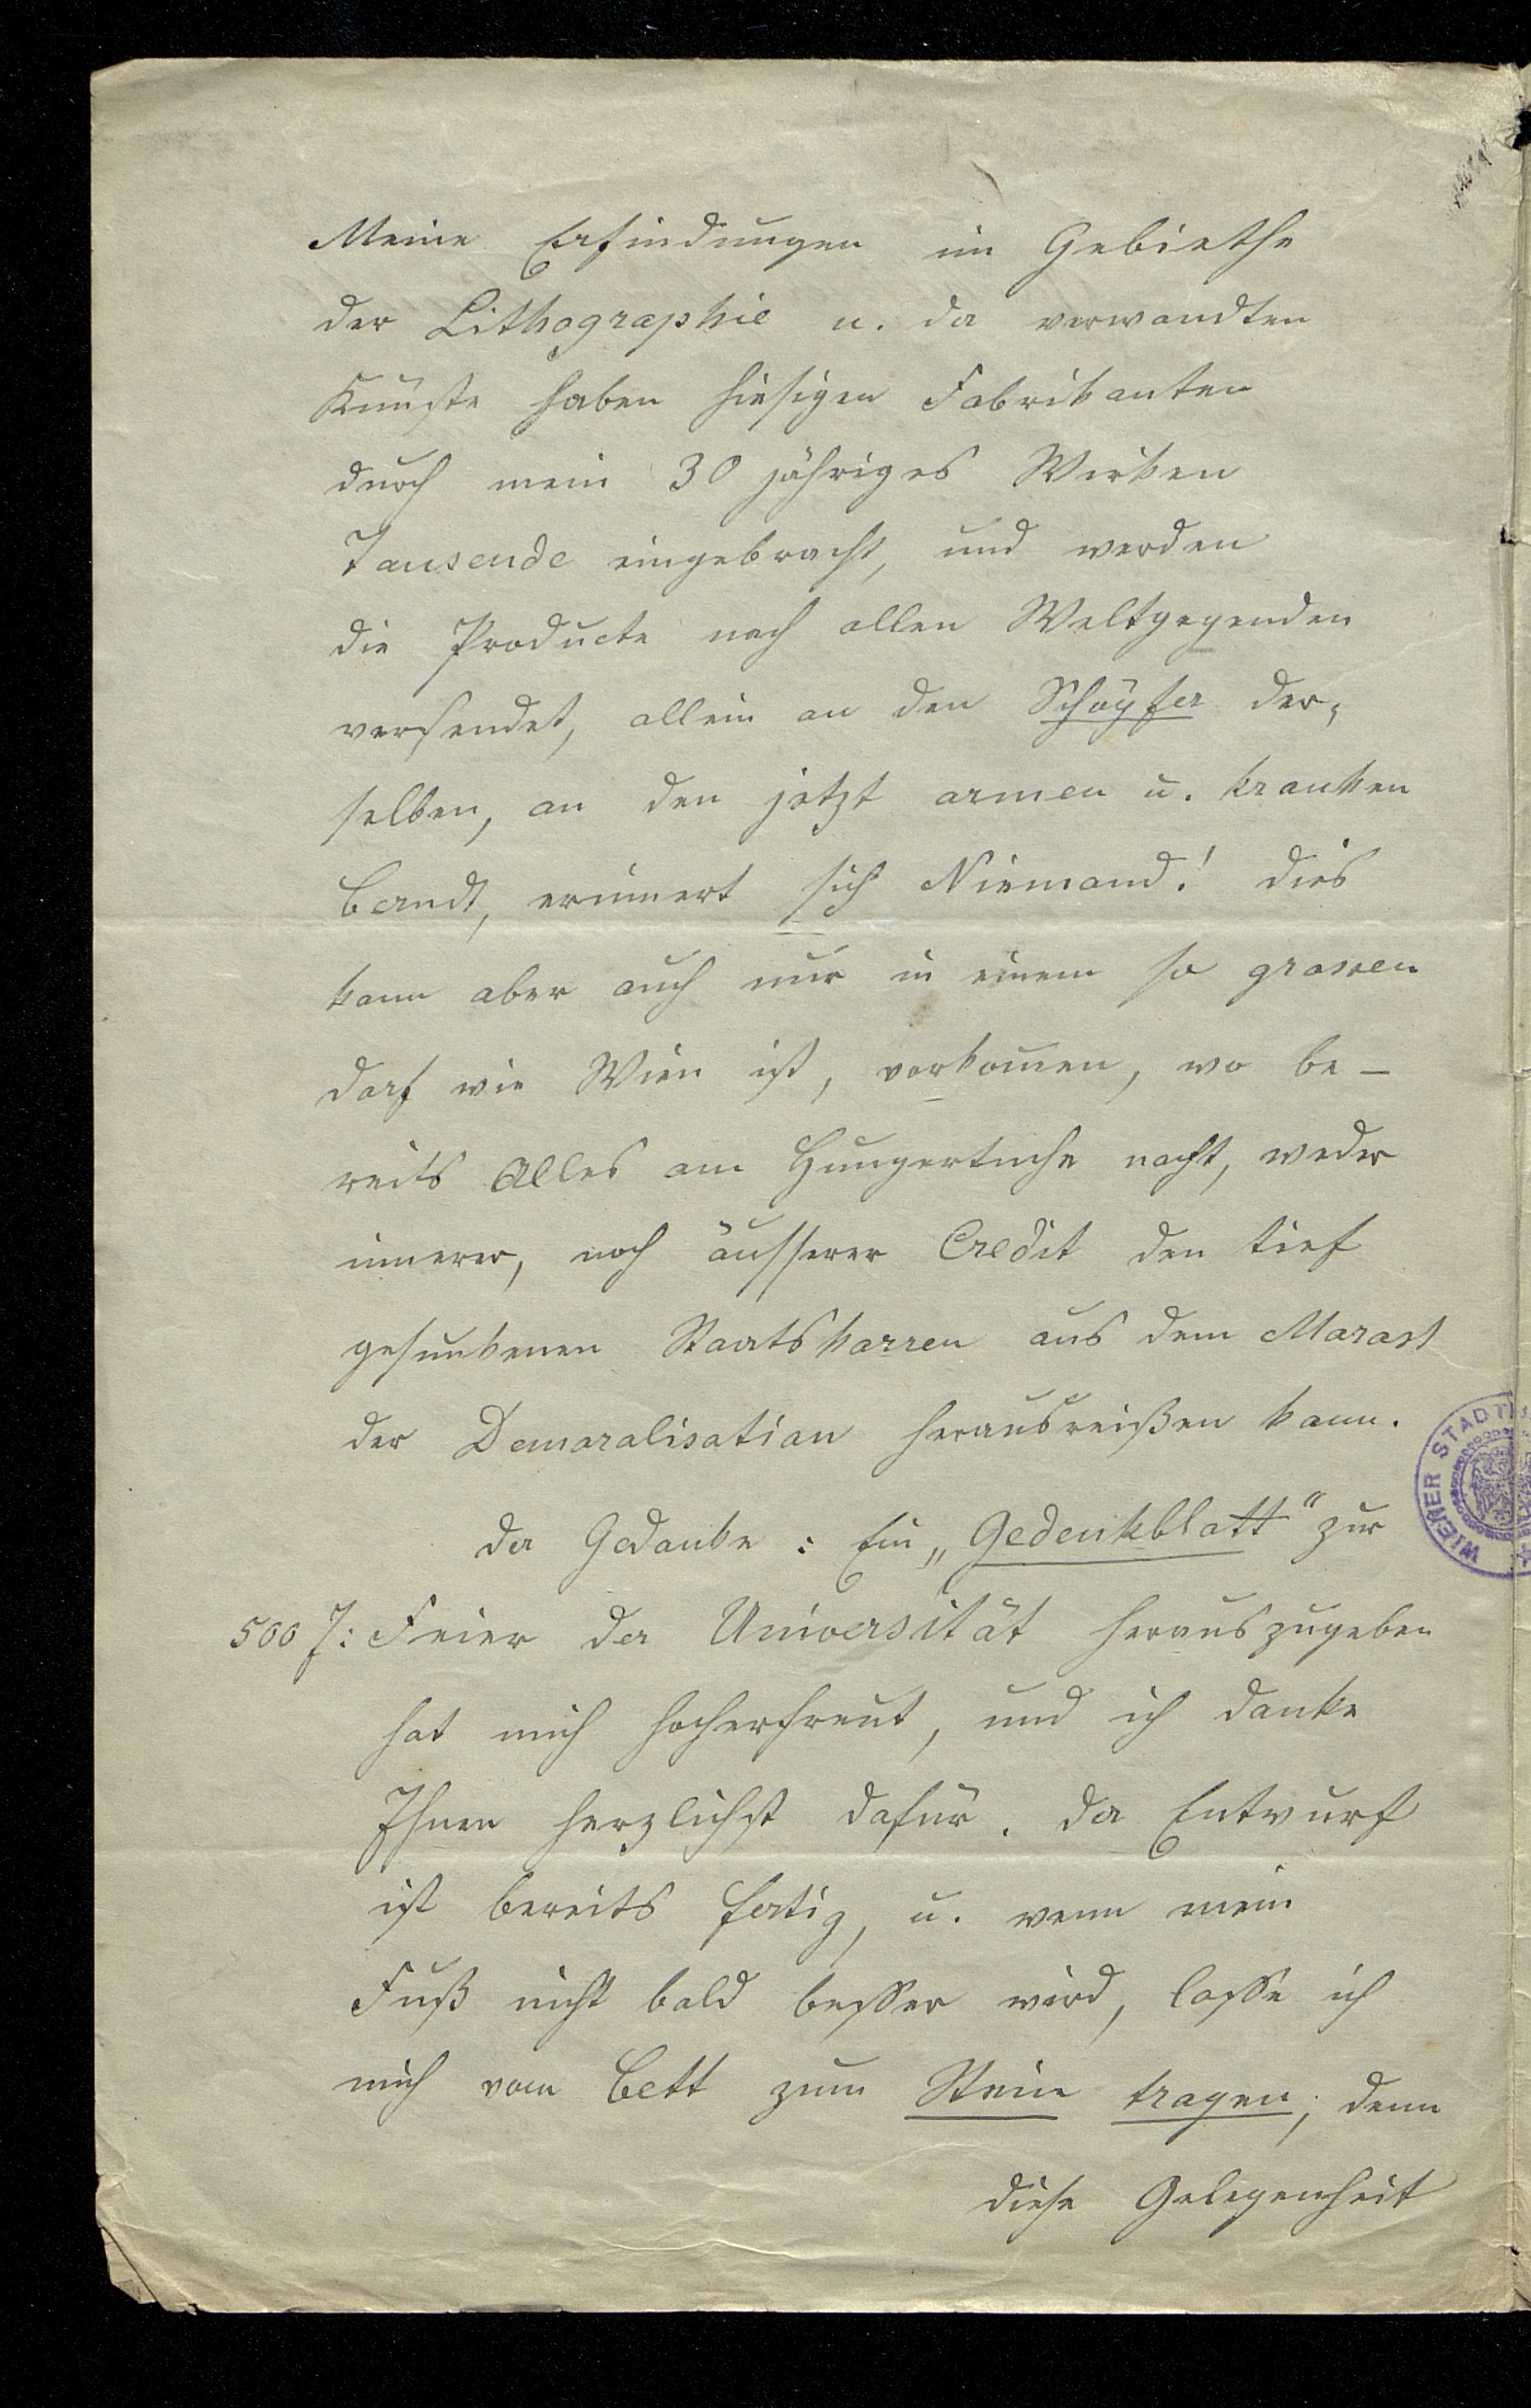 Meine Erfindungen im Gebiethe
der Lithographie u. der verwandten
Künste haben hiesigen Fabrikanten
durch mein 30 jähriges Wirken
Tausende eingebracht, und werden
die Producte nach allen Weltgegenden
versendet, allein an den Schöpfer der„
selben, an den jetzt armen u. kranken
Berndt, erinnert sich Niemand! dies
kann aber auch nur in einem so grossen
Dorf wie Wien ist, vorkom̄en, wo be-
reits Alles am Hungertuche nagt, weder
innerer, noch äusserer Credit den tief
gesunkenen Staatskarren aus dem Morast
der Demoralisation herausreißen kann.
Der Gedanke: Ein „Gedenkblatt" zur
500 J: Feier der Universität herauszugeben
hat mich hocherfreut, und ich danke
Ihnen herzlichst dafür. Der Entwurf
ist bereits fertig, u. wenn mein
Fuß nicht bald besser wird, lasse ich
mich vom Bett zum Stein tragen; denn
diese Gelegenheit
WIENER STADT